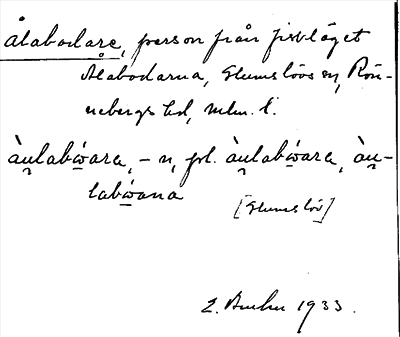 Ålabodare, person från fiskläget
Ålabodarna, Glumslövs sn, Rön-
nebergs hd, mlm. l.
àu̯labẃara, -n, pl. àu̯labẃara, àu̯-
labẃana
[Glumslöv]
1933.